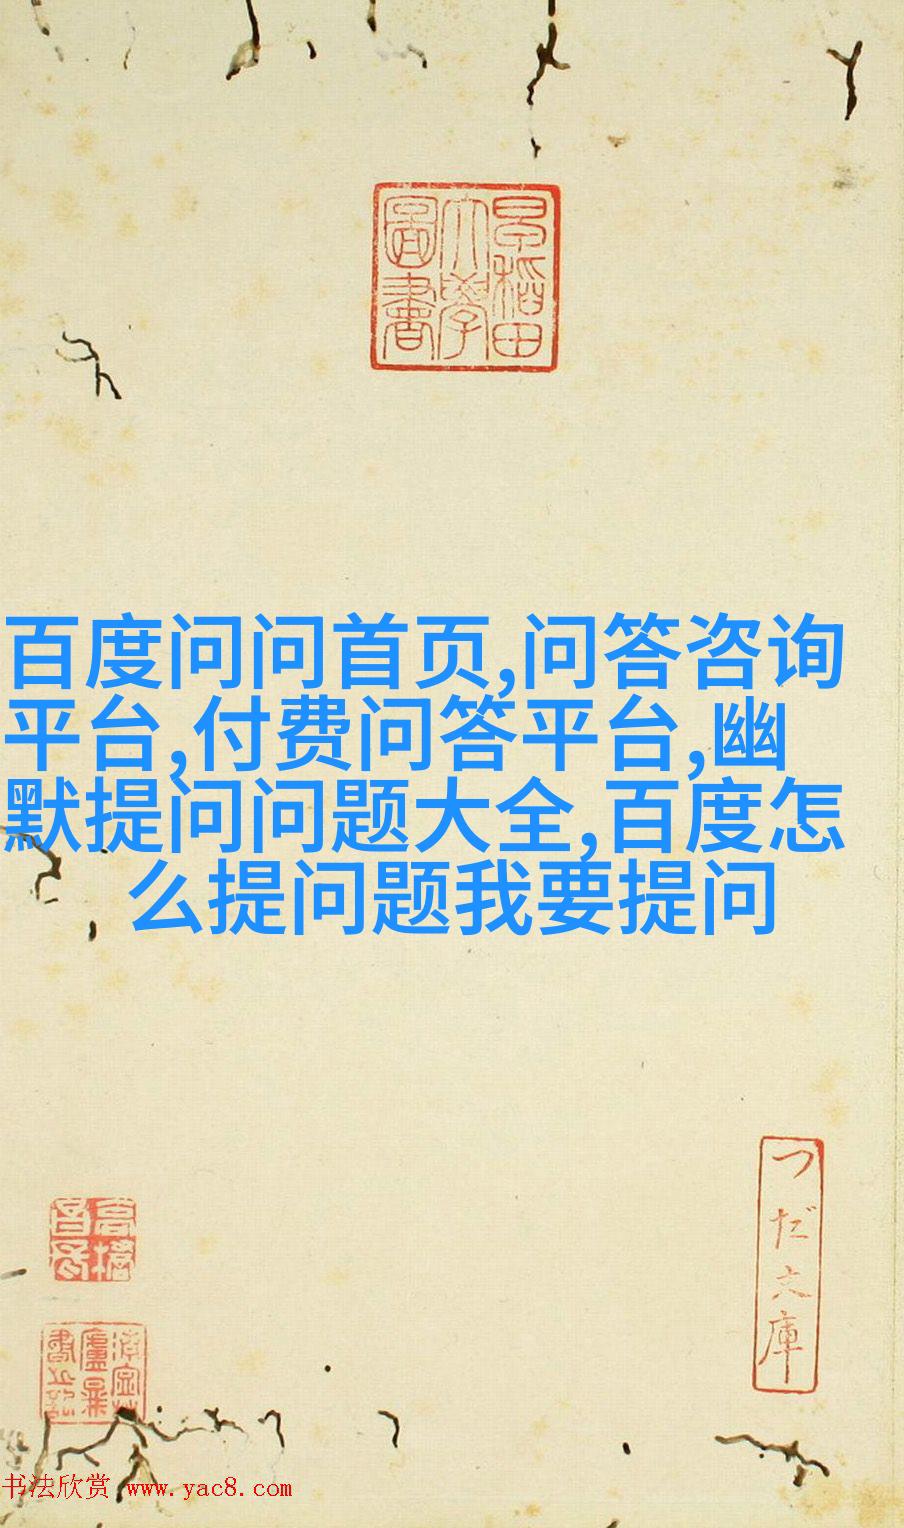 早稻田
大學
圖書
百度问问首页,问答咨询
平台,付费问答平台,幽
默提问问题大全,百度怎
么提问题我要提问
つだ文庫
书法欣赏 www.yac8.com